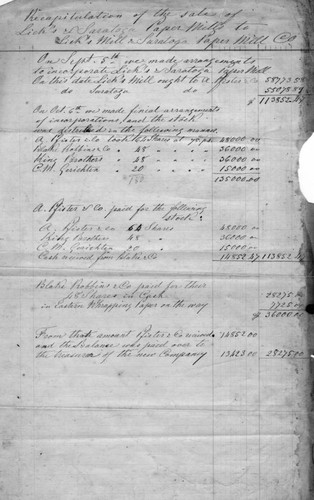 Recapitulation of the sales of
Lick's & Saratoga Paper Mills to
Lick's Mill & Saratoga Paper Mill Co
On Sept. 5th we made arrangements
to incorporate Lick's & Saratoga Paper Mill
On this date Lick's Mill ought to 58773.58
do Saratoga do 55078.89
$ 113852.47
On Oct. 5th we made final arrangements
of incorporations, and the stock
was distributed in the following manner.
A. Pfister & Co took 64 Shares at 48000.00
Blake Robbins & Co " 48 " 36000.00
King Brothers " 48 " 36000.00
C. M. Quichten " 20 " 15000.00
180 135000.00
A. Pfister & Co. paid for the following
stock:
A. Pfister & Co 64 Shares 48000.00
King Brothers 48 " 36000.00
C. M. Quichten 20 " 15000.00
Cash received from Pfister & Co 14852.47 113852.47
Blake Robbins & Co paid for their
48 Shares in Cash 28275.00
in Eastern Wrapping Paper on the way 7725.00
$ 36000.00
From that amount Pfister & Co received 14852.00
and the Balance was paid over to
the Treasurer of the new Company 13423.00 28275.00